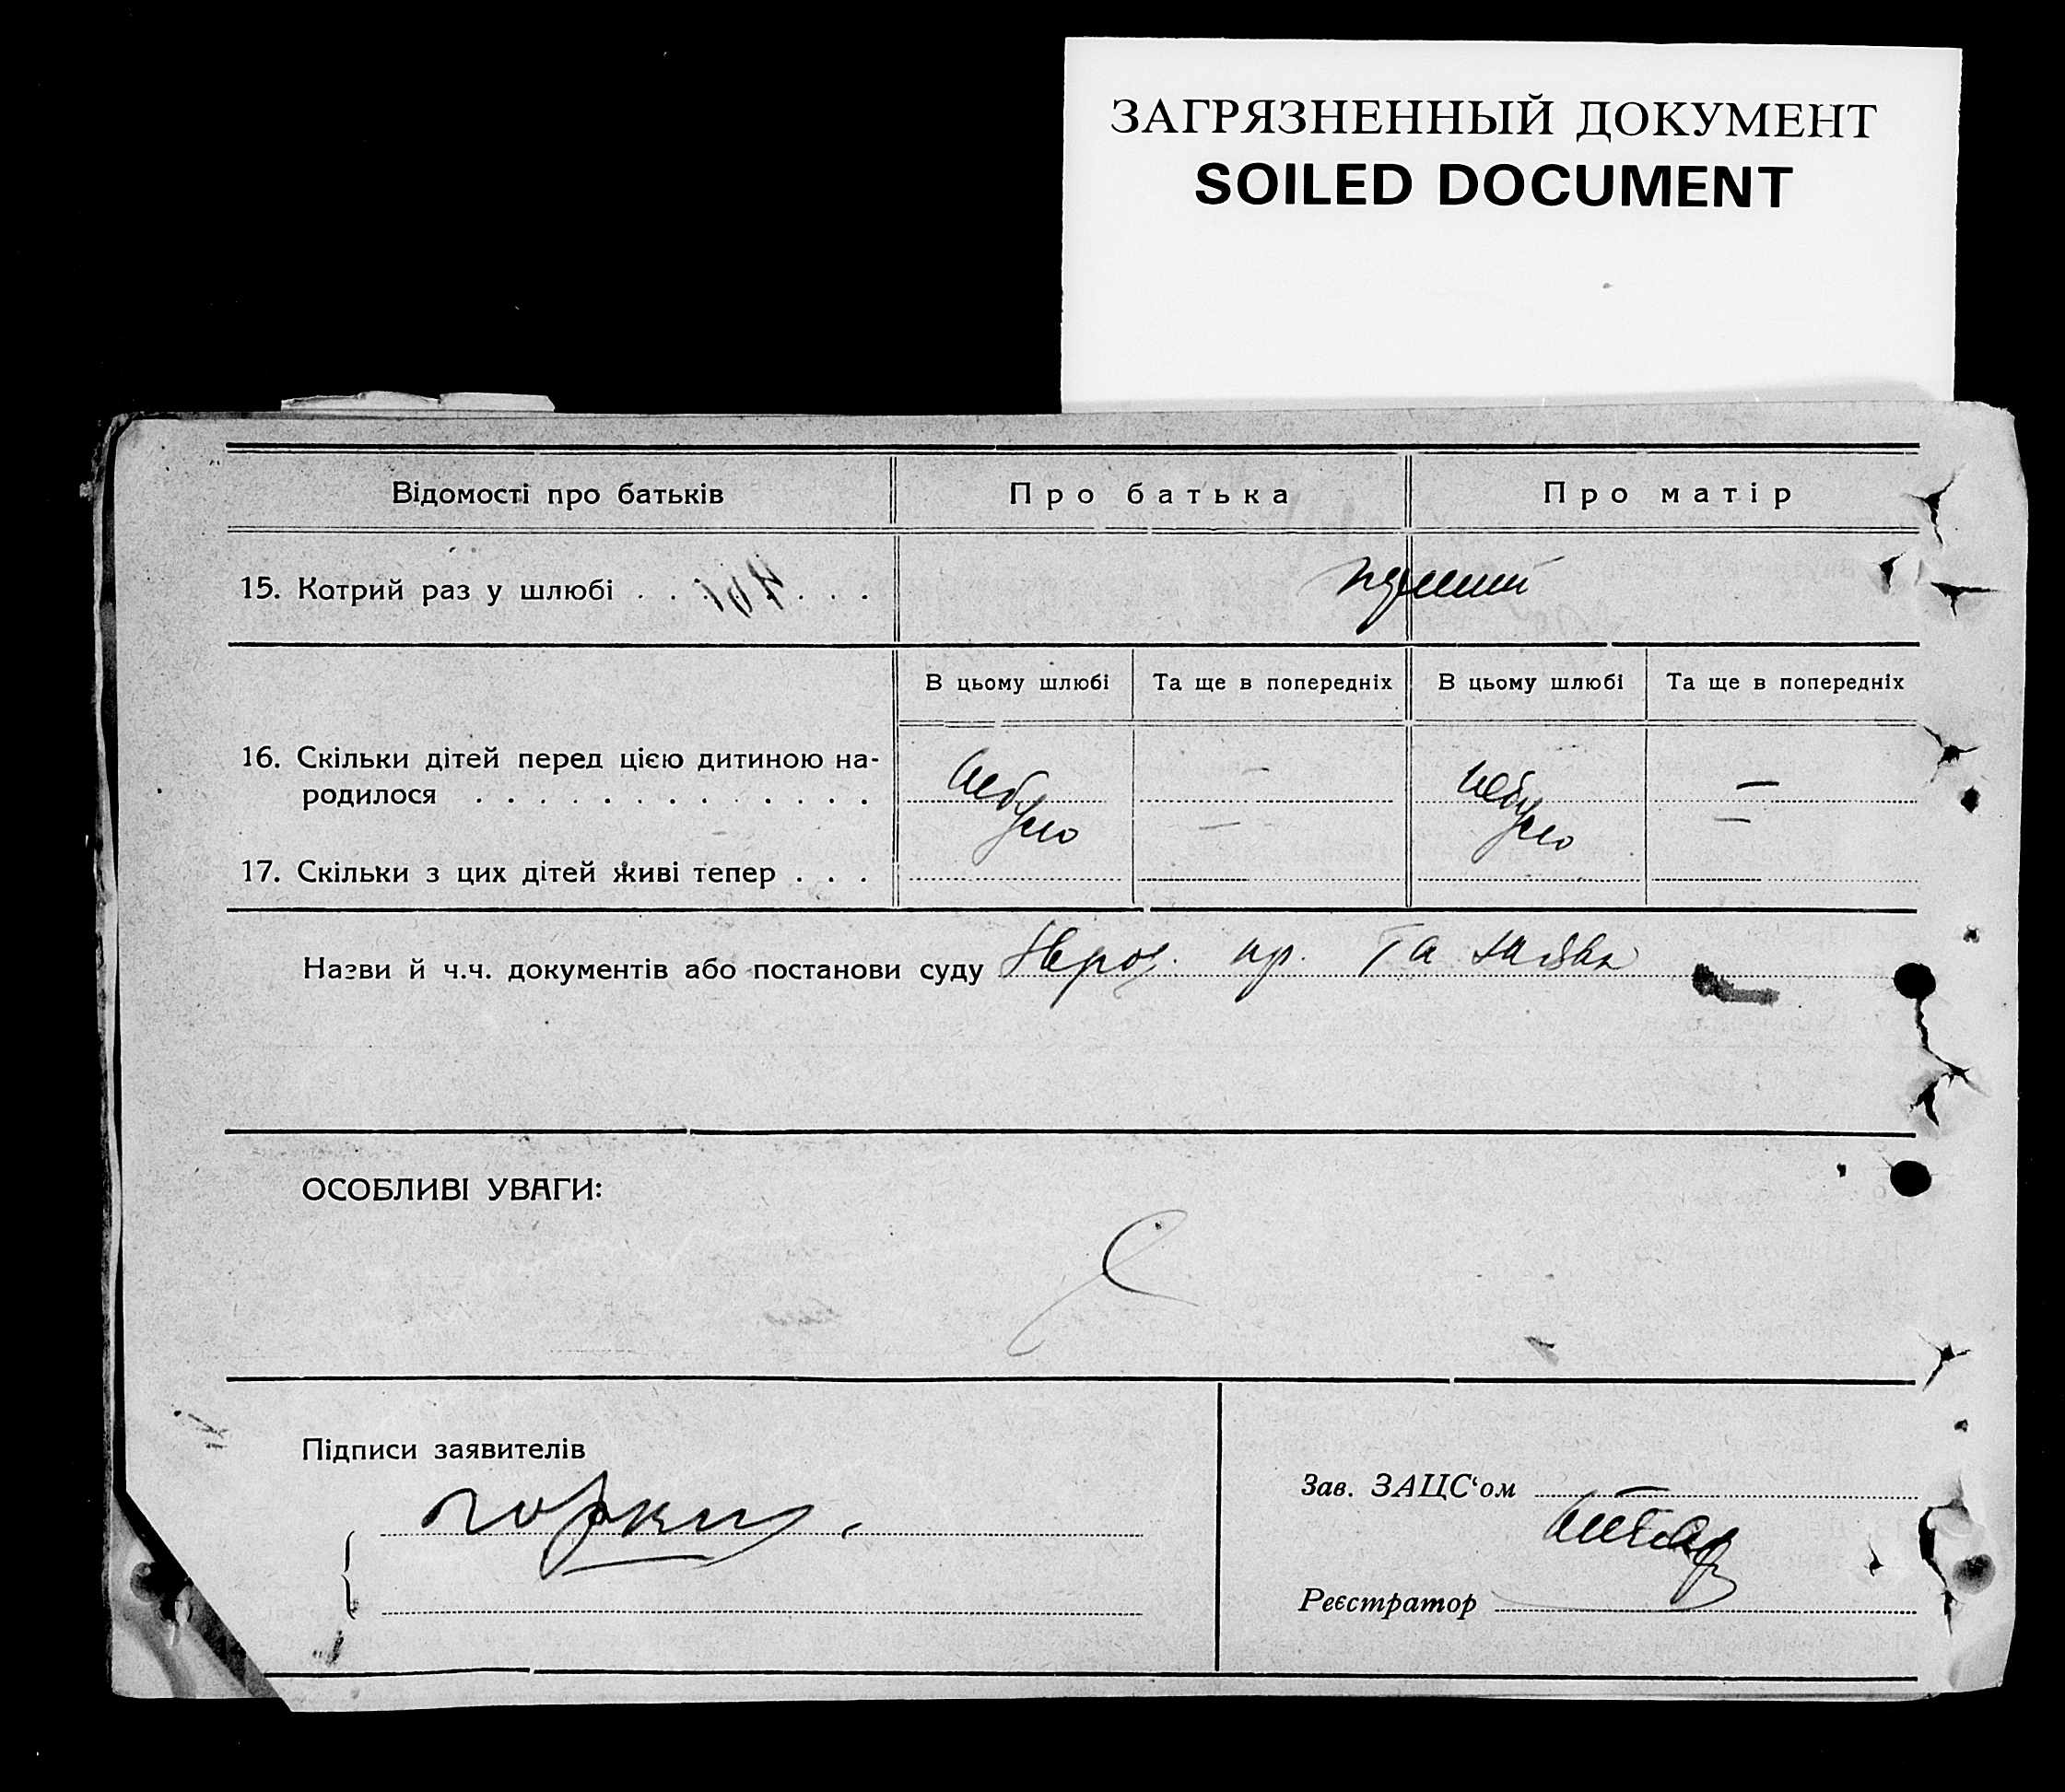 ЗАГРЯЗНЕННЫЙ ДОКУМЕНТ
SOILED DOCUMENT
Відомості про батьків
Про батька
Про матір
15. Котрий раз у шлюбі
перший
В цьому шлюбі
Та ще в попередніх
В цьому шлюбі
Та ще в попередніх
16. Скільки дітей перед цією дитиною на-
родилося
небуло
—
небуло
—
—
—
17. Скільки з цих дітей живі тепер
Назви й ч.ч. документів або постанови суду
та заява
ОСОБЛИВІ УВАГИ:
Підписи заявителів
Зав. ЗАЦС‘ом
Реєстратор